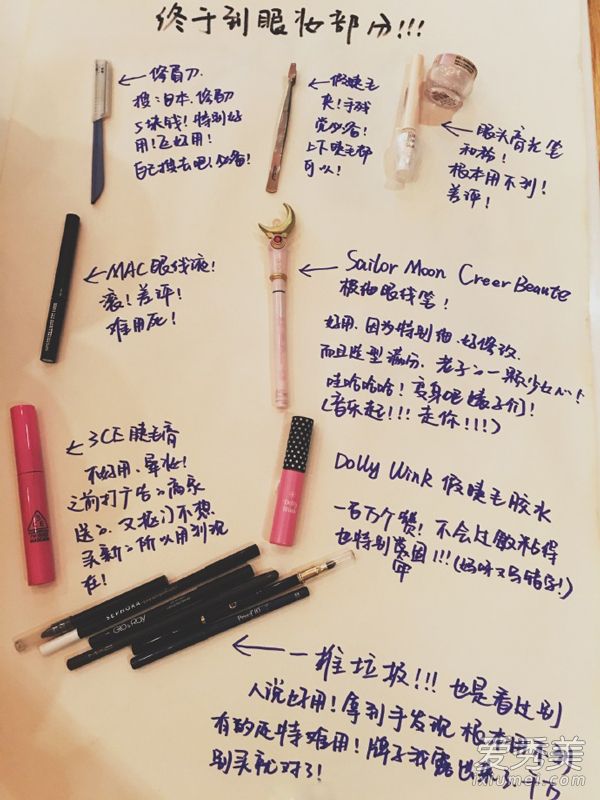 终于到眼妆部分!!!
←修眉刀.
搜:日本.修眉刀
5块钱!特别好
用!飞好用!
自己搜去吧!必备!
←假睫毛
夹!手残
党必备!
上下睫毛都
可以!
←眼头高光笔
和粉!
根本用不到!
差评!
←MAC眼线液!
滚!差评!
难用死!
← Sailor Moon Creer Beaute
极细眼线笔!
好用.因为特别细.好修改.
而且造型漂亮.老子一颗少女心!
哇哈哈哈!变身吧婊子们!
(音乐起!!!走你!!!)
←3CE睫毛膏
不好用、晕妆!
之前打广告商家
送.又抠门不想
买新所以用到现
在!
Dolly Wink
Dolly Wink 假睫毛胶水
一百万个赞!不会过敏粘得
也特别牢固!!!(妈咪又写错字!)
SEPHORA
GLO & RAY
Proof 10
←一堆垃圾!!!也是看过别
人说好用!拿到手发现根本用不到
有的还特难用!牌子我露出来
别买就对了!
爱秀美
ixiumei.com